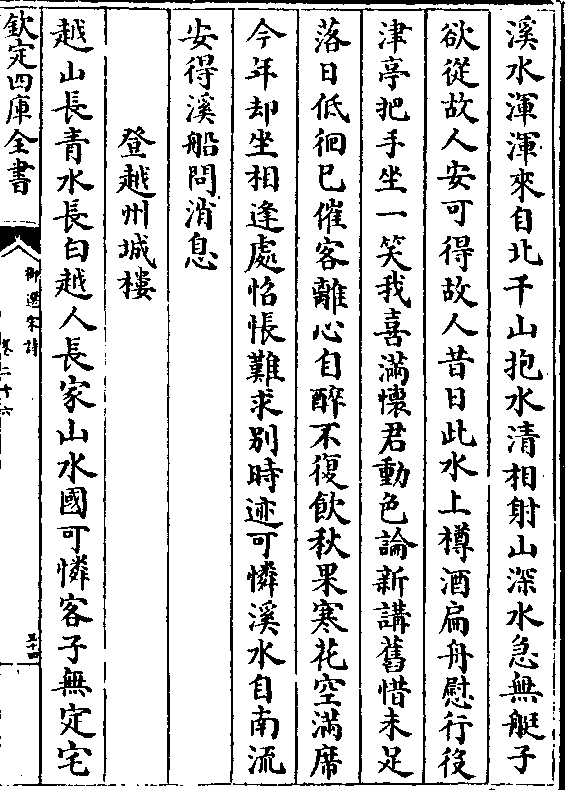 溪水渾渾來自北千山抱水清相射山深水急無艇子
欲從故人安可得故人昔日此水上樽酒扁舟慰行役
津亭把手坐一笑我喜滿懷君動色論新講舊惜未足
落日低徊已催客離心自醉不復飲秋果寒花空滿席
今年却坐相逢處怊悵難求别時迹可憐溪水自南流
安得溪船問消息
登越州城樓
越山長青水長白越人長家山水國可憐客子無定宅
欽定四庫全書
御選宋詩
卷二十六
三十四